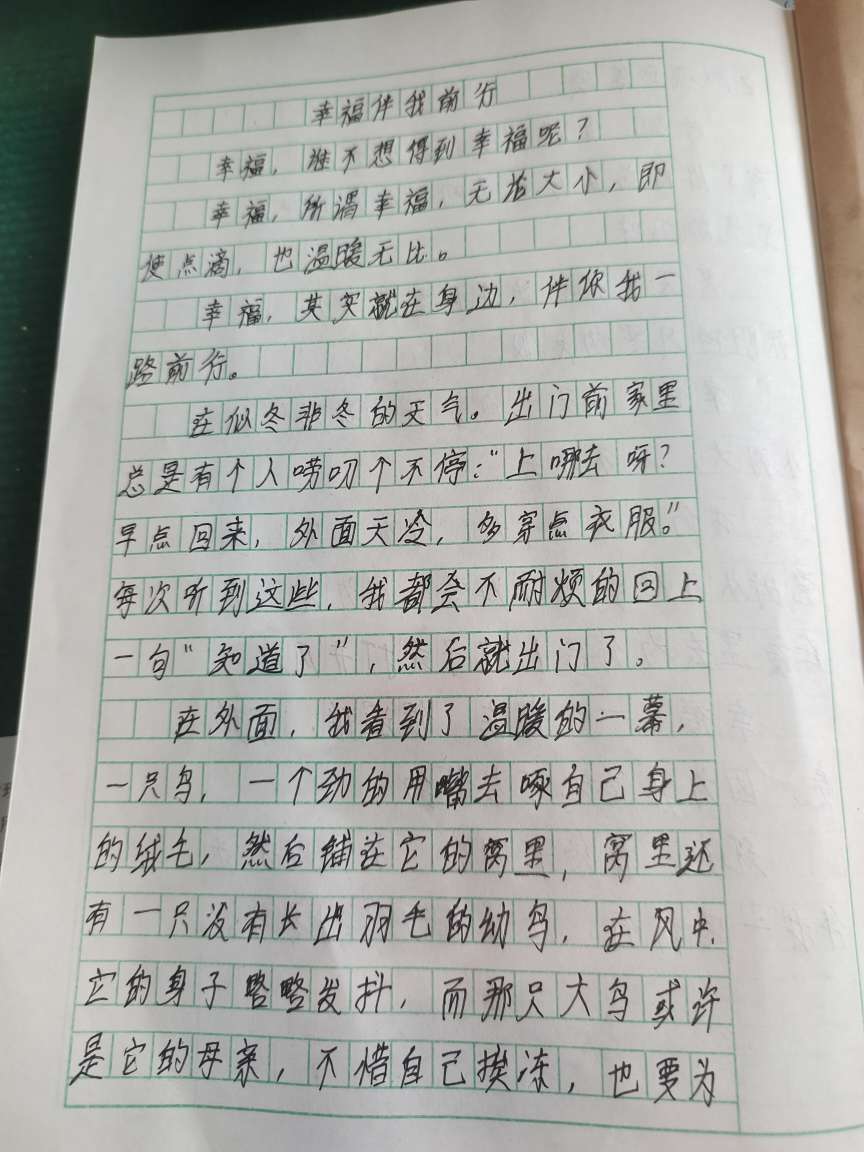 幸福伴我前行
幸福，谁不想得到幸福呢？
幸福，所谓幸福，无若大小，即
使点滴，也温暖无比。
幸福，其实就在身边，伴你我一
路前行。
在似冬非冬的天气。出门前家里
总是有个人唠叨个不停：“上哪去呀？
早点回来，外面天冷，多穿点衣服。”
每次听到这些，我都会不耐烦的回上
一句“知道了”，然后就出门了。
在外面，我看到了温暖的一幕，
一只鸟，一个劲的用嘴去啄自己身上
的绒毛，然后铺在它的窝里，窝里还
有一只没有长出羽毛的幼鸟，在风中，
它的身子发抖，而那只大鸟或许
是它的母亲，不惜自己挨冻，也要为